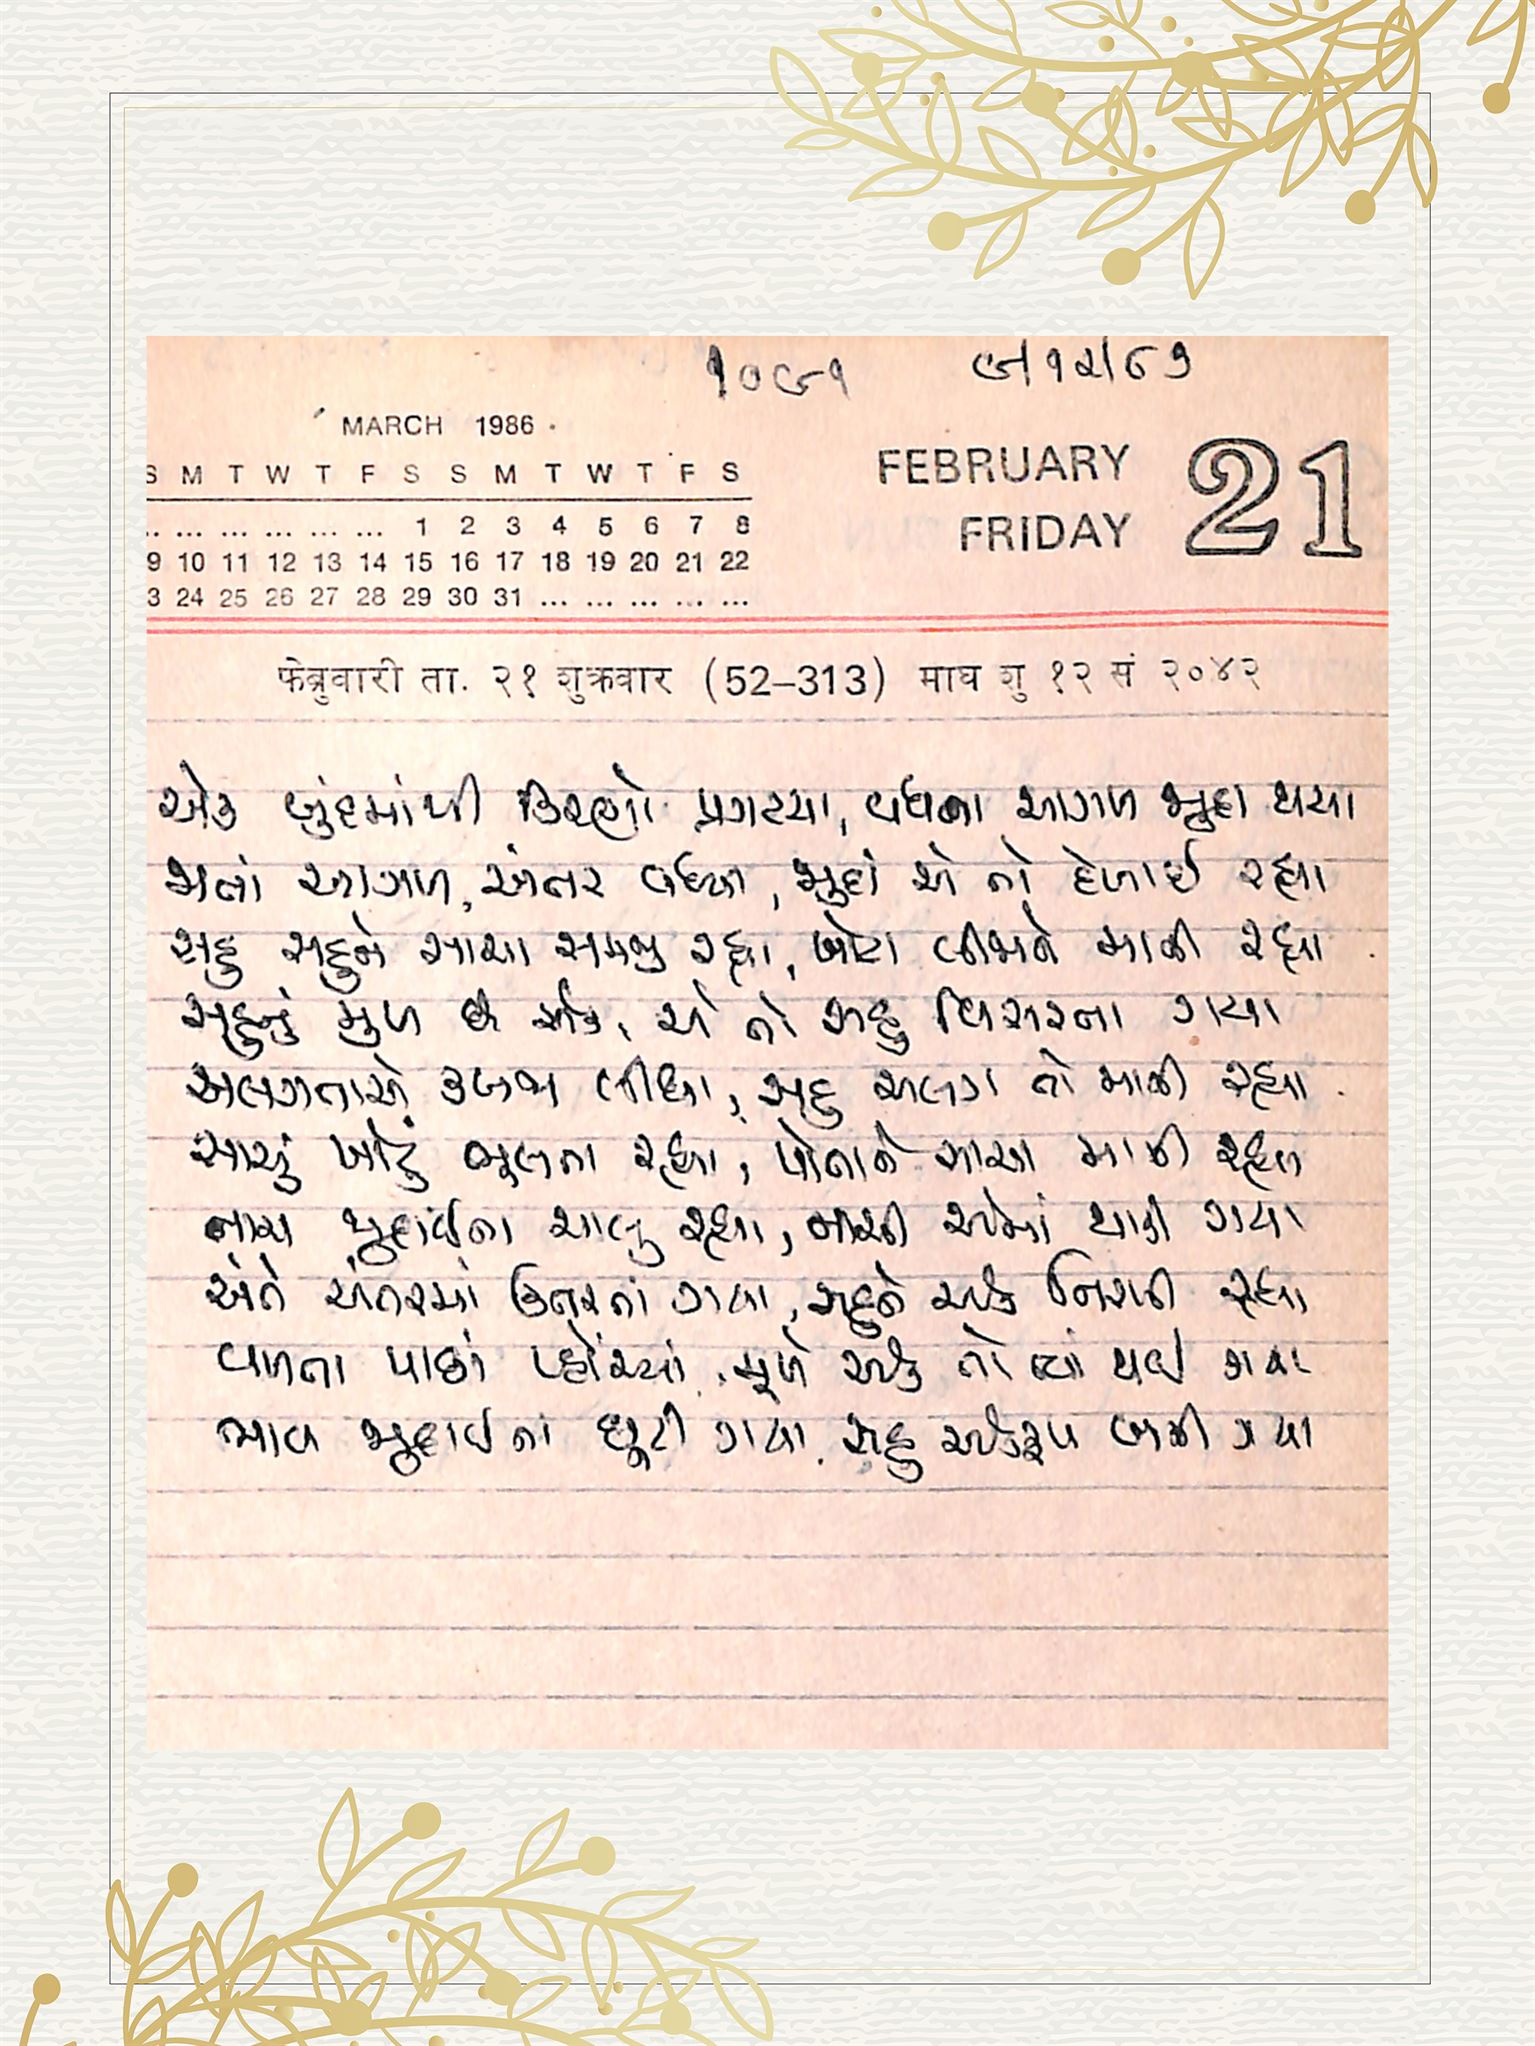 ૧૦૯૧ ૯/૧૨/૮૭
MARCH 1986
FEBRUARY 21
FRIDAY
S M T W T F S S M T W T F S
.. ... ... ... ... ... 1 2 3 4 5 6 7 8
9 10 11 12 13 14 15 16 17 18 19 20 21 22
3 24 25 26 27 28 29 30 31 ... ... ... ... ...
फेब्रुवारी ता. २१ शुक्रवार (52-313) माघ शु १२ सं २०४२
એક બુંદમાંથી કિરણો પ્રગટયા, વધતા આગળ જુદા થયા
જતાં આગળ, અંતર વધ્યા, જુદાં એ તો દેખાઈ રહ્યા
સહુ સહુને સાચા સમજી રહ્યા, ખોટા બીજાને માની રહ્યા
સહુનું મુળ છે એક, એ તો સહુ વિસરતા ગયા
અલગતાએ કબજા લીધા, સહુ અલગ તો માની રહ્યા
સાચું ખોટું ભૂલતા રહ્યા, પોતાને સાચા માની રહ્યા
નાચ જુદાઈના ચાલુ રહ્યા, નાચી એમાં થાકી ગયા
અંતે અંતરમાં ઉતરતાં ગયા, સહુને એક નિરખી રહ્યા
વળતા પાછાં પ્હોંચ્યાં, મૂળે એક તો ત્યાં થઈ ગયા
ભાવ જુદાઈનાં છૂટી ગયા, સહુ એકરૂપ બની ગયા